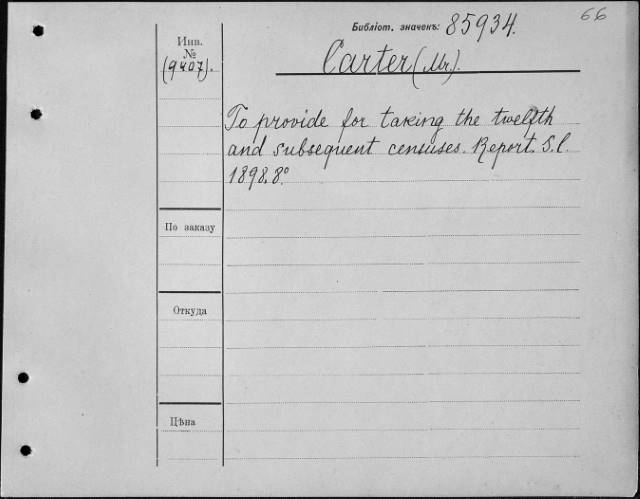 66
Библіот. значекъ: 85934.
Инв.
№
(9407).
Carter (Mr).
To provide for taking the twelfth
and subsequent censuses. Report. S. l.
1898. 8°
По заказу
Откуда
Цѣна